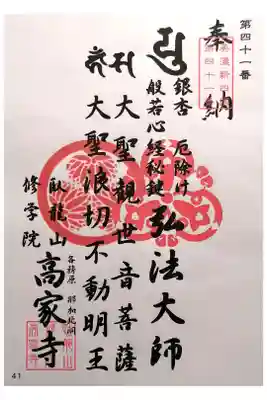 第四十一番
奉納
銀杏 厄除け
般若心経秘鍵
弘法大師
大聖観世音菩薩
大聖浪切不動明王
臥龍山
修学院
高家寺
各務原 那加北洞
41